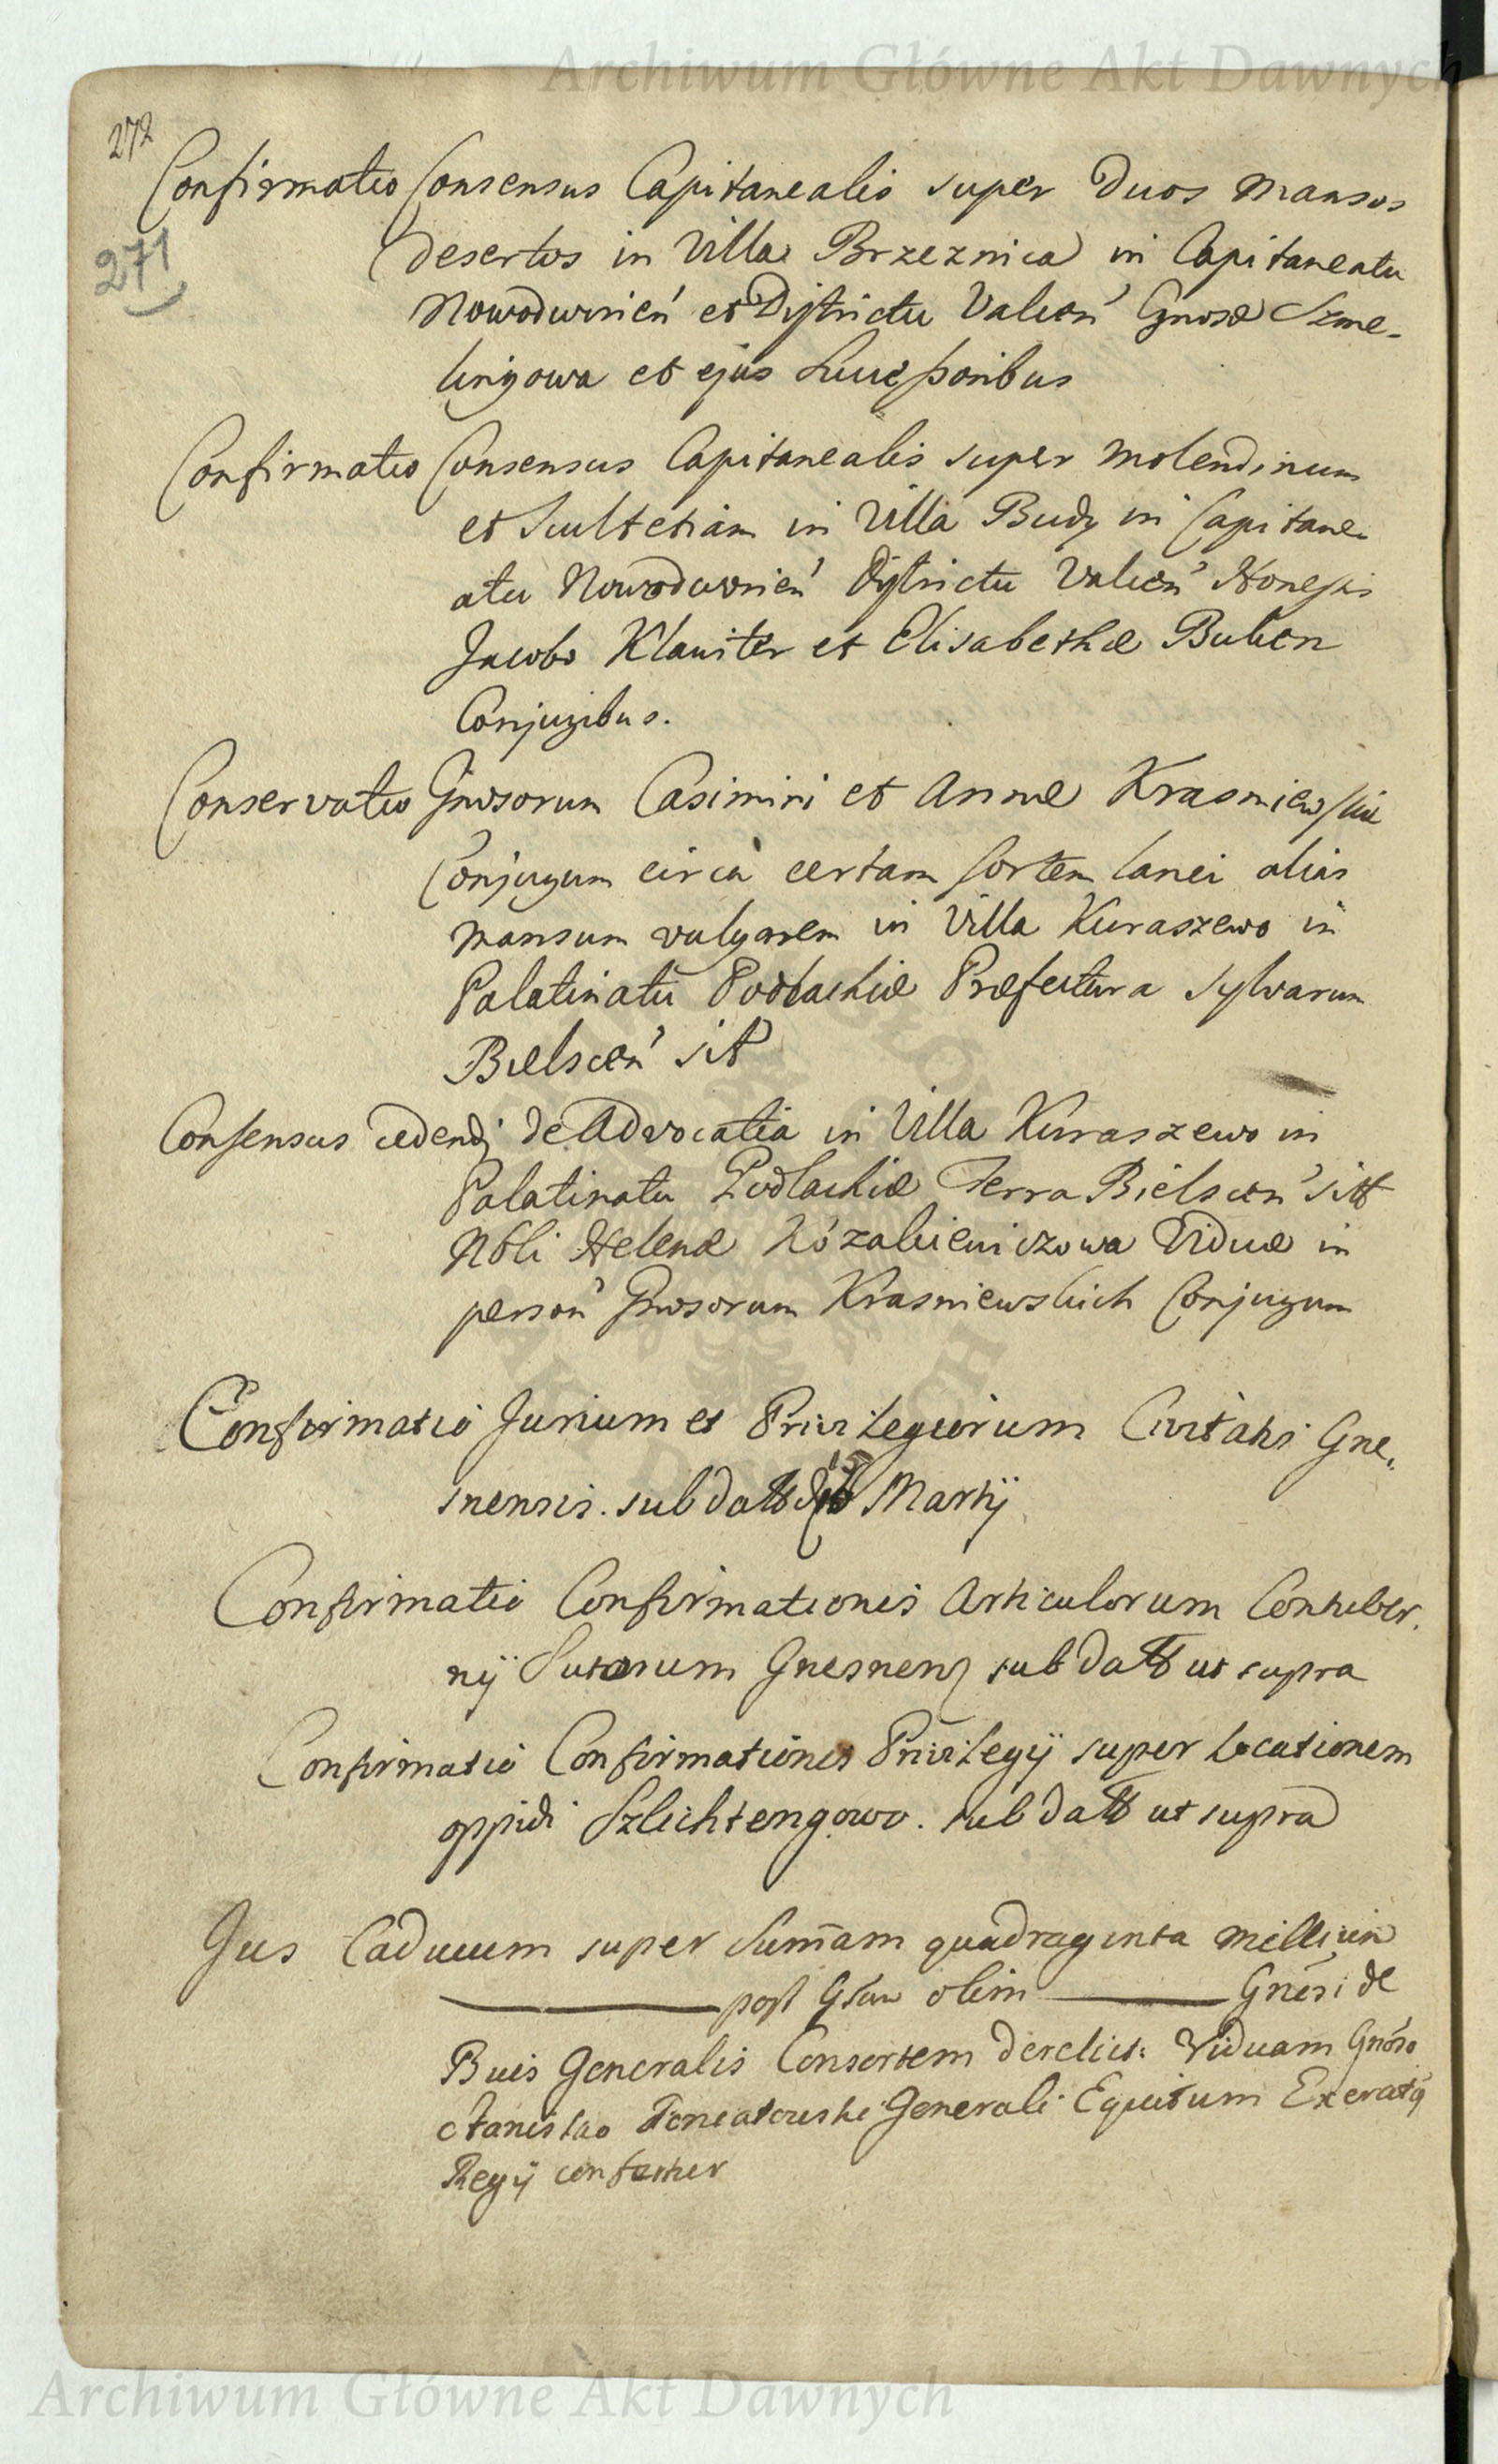 Archiwum Główne Akt Dawnych
272
Confirmatio Consensus Capitanealis super Duos Mansos
271
Desertos in Villa Brzeznica in Capitaneatu
Nowodwricń et Districtu Valcen Gnosæ Szme-
lingowa et ejus Succ͠soribus
Confirmatio Consensus Capitanealis super Molendinum
et Scultetiam in Villa Budy in Capitane-
atu Nowodworień Districtu Valcen Honestis
Jacobo Klawiter et Elisabethæ
Conjugibus.
Conservatio Gnosorum Casimiri et Annæ Krasniewskie
Conjugum circa certam sortem lanei alias
Mansum vulgarem in Villa Kuraszewo in
Palatinatu Podlachiæ Præfectura Sylvarum
Bielscen sitt
Consensus cedendi de Advocatia in Villa Kuraszewo in
Palatinatu Podlachiæ Terra Bielscen sitt
Nbli Helenæ Viduæ in
person Gnosorum Krasniewskich Conjugum
Confirmatio Jurium et Privilegiorum Civitatis Gne-
snensis. sub datt Martij
Confirmatio Confirmationis Articulorum Contuber-
nij Sutorum Gnesnens sub datt ut supra
Confirmatio Confirmationis Privilegij super Locationem
oppidi Szlichtengowo. sub datt ut supra
Jus Caducum super Sum̄am quadraginta Millium
post olim Gnẽsi de
Buis Generalis Consortem derelict: Viduam Gnõso
Stanislao Poniatowski Generali Equitum Exercitq
Regij confertur
Archiwum Główne Akt Dawnych